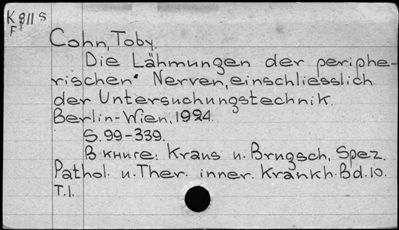 K 911 s
F
Cohn, Toby.
Die Lähmungen der periphe-
rischen Nerven, einschliesslich
der Untersuchungstechnik.
Berlin-Wien, 1924.
S. 99-339.
В книге: Kraus u. Brugsch, Spez.
Pathol. u. Ther. inner. Krankh. Bd. 10.
T. 1.